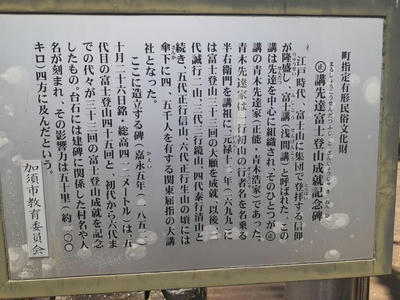 町指定有形民俗文化財
㊣講先達富士登山成就記念碑
江戸時代、富士山に集団で登拝する信仰
が隆盛し、富士講（浅間講）と呼ばれた。この
講は先達を中心に組織され、そのひとつが㊣
講の青木先達家（正能・青木浩家）であった。
青木先達家は、行初山の行名を名乗る
半右衛門を講祖に、元禄十二年（一六九九）に
は富士登山三十三回の大願を成就、以後、二
代誠行二山、三代三行鏡山、四代泰行清山と
続き、五代正行信山、六代正行生山の頃には
傘下に四、五千人を有する関東屈指の大講
社となった。
ここに造立する碑（嘉永五年（一八五二）
十月二十六日銘・総高四二二メートル）は、五
代目の富士登山四十五回と、初代から六代ま
での代々が三十三回の富士登山成就を記念
したもの。台石には建碑に関係した村名や人
名が刻まれ、その影響力は五十里（約二〇〇
キロ）四方に及んだという。
加須市教育委員会